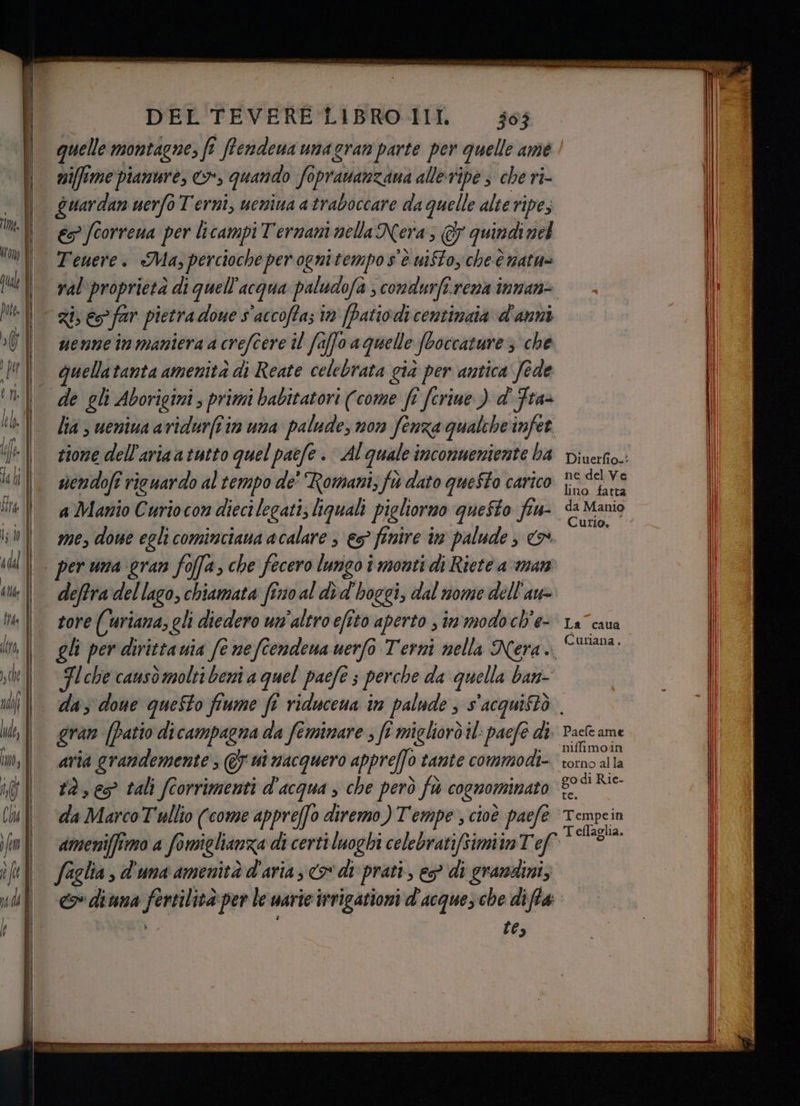 DEL TEVERE LIBRO III. 303
quelle montagne, si stendeua una gran parte per quelle ame
nissime pianure, &, quando soprauanzaua alle ripe, che ri-
guardan uerso Terni, ueniua a traboccare da quelle alte ripe,
& scorreua per li campi Ternani nella Nera, & quindi nel
Teuere. Ma, percioche per ogni tempo s'è uisto, che è natu-
ral proprietà di quell'acqua paludosa, condursi rena innan-
zi, & far pietra doue s'accosta; in spatio di centinaia d'anni
uenne in maniera a crescere il sasso a quelle sboccature, che
quella tanta amenità di Reate celebrata già per antica sede
de gli Aborigini, primi habitatori (come si scriue) d' Ita-
lia, ueniua a ridursi in una palude, non senza qualche infet
tione dell'aria a tutto quel paese. Al quale inconueniente ha
uendosi riguardo al tempo de' Romani, fù dato questo carico
a Manio Curio con dieci legati, liquali pigliorno questo fiu-
me, doue egli cominciaua a calare, & finire in palude, &
per una gran fossa, che fecero lungo i monti di Riete a man
destra del lago, chiamata fino al dì d'hoggi, dal nome dell'au-
tore Curiana, gli diedero un'altro esito aperto, in modo ch'e-
gli per dirittauia se ne scendeua uerso Terni nella Nera.
Ilche causò molti beni a quel paese; perche da quella ban-
da, doue questo fiume si riduceua in palude, s'acquistò
gran spatio di campagna da seminare, si migliorò il paese di
aria grandemente, & ui nacquero appresso tante commodi-
tà, & tali scorrimenti d'acqua, che però fù cognominato
da Marco Tullio (come appresso diremo) Tempe, cioè paese
amenissimo a somiglianza di certi luoghi celebratissimi in Tes
saglia, d'una amenità d'aria, & di prati, & di grandini,
& di una fertilità per le uarie irrigationi d'acque, che dista
te,
Diuersio-
ne del Ve
lino fatta
da Manio
Curio.
La caua
Curiana.
Paese ame
nissimo in
torno alla
go di Rie-
te.
Tempe in
Tessaglia.